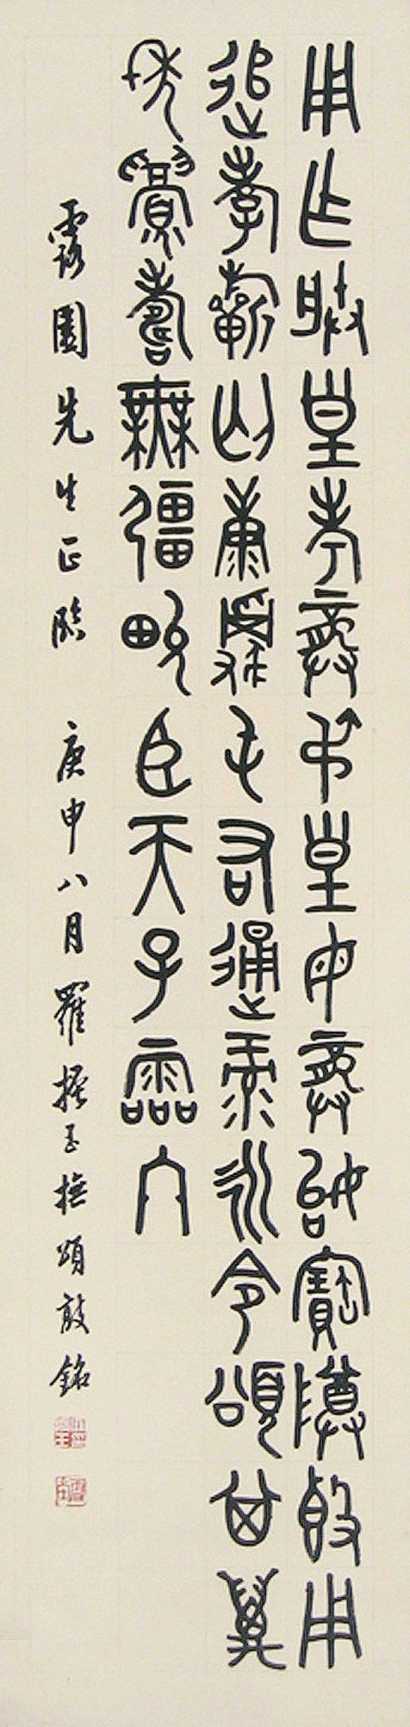 用作朕皇考龏弔皇母龏始寶尊𣪘用
追孝祈匄康屯右通彔永令頌其萬
年眉壽無疆畯臣天子霝冬
露園先生正臨 庚申八月羅振玉橅頌敦銘